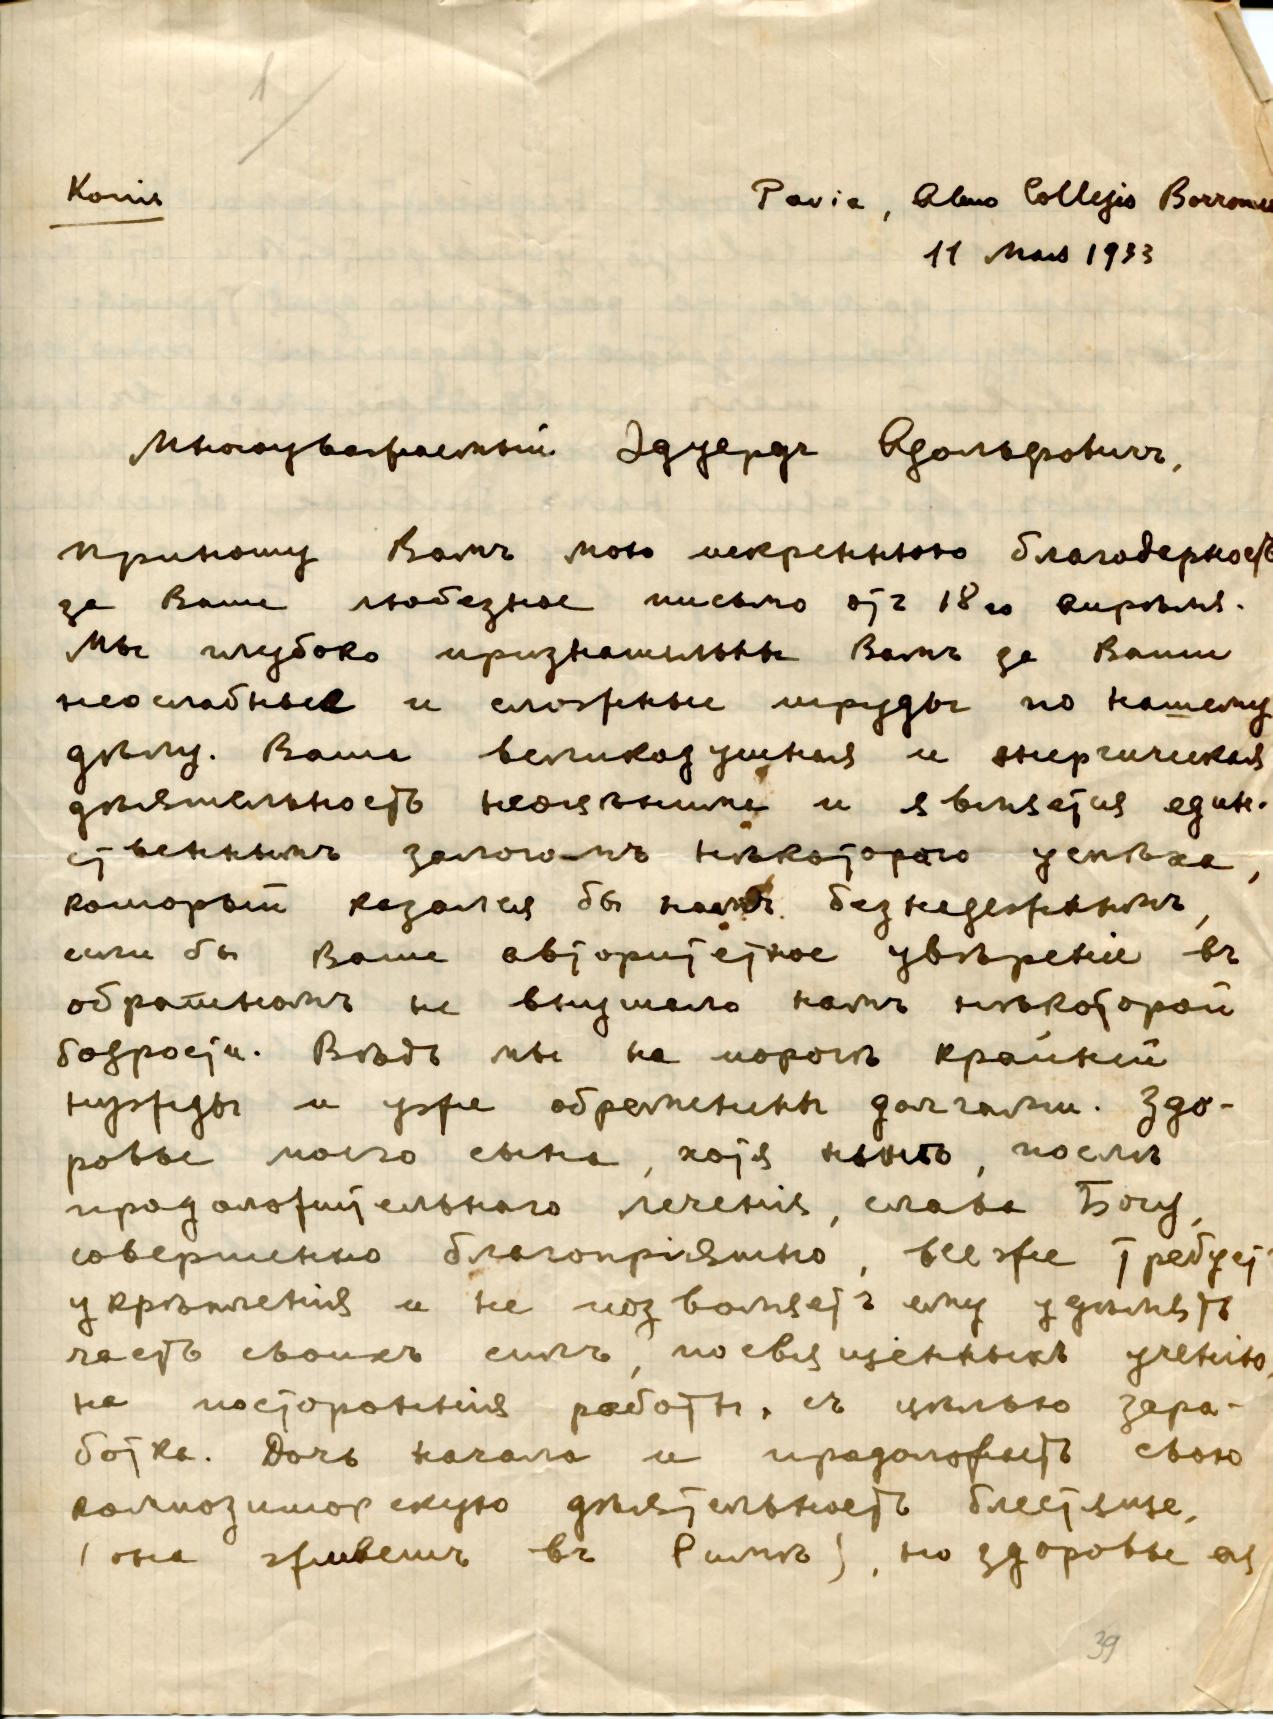 1
Копія
Pavia, Almo Collegio Borromeo
11 Мая 1933
Многоуважаемый Эдуардъ Адольфовичъ,
приношу Вамъ мою искреннюю благодарность
за Ваше любезное письмо отъ 18го апрѣля.
Мы глубоко признательны Вамъ за Ваши
неослабные и сложные труды по нашему
дѣлу. Ваша великодушная и энергическая
дѣятельность неоцѣнима и является един-
ственнымъ залогомъ нѣкотораго успѣха,
который казался бы намъ безнадежнымъ,
если бы Ваше авторитетное увѣреніе въ
обратномъ не внушало намъ нѣкоторой
бодрости. Вѣдь мы на порогѣ крайней
нужды и уже обременены долгами. Здо-
ровье моего сына, хотя нынѣ, послѣ
продолжительнаго леченія, слава Богу,
совершенно благопріятно, все же требуетъ
укрѣпленія и не позволяетъ ему удѣлять
часть своихъ силъ, посвященныхъ ученію,
на постороннія работы, съ цѣлью зара-
ботка. Дочь начала и продолжаетъ свою
композиторскую дѣятельность блестяще,
(она живетъ въ Римѣ), но здоровье ея
39